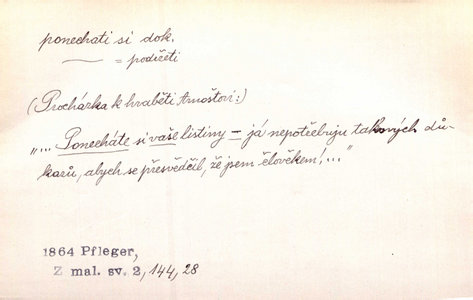 ponechati si dok.
— = podržeti
(Procházka k hraběti Arnoštovi:)
„... Ponecháte si vaše listiny – já nepotřebuju takových dů-
kazů, abych se přesvědčil, že jsem člověkem!..."
1864 Pfleger,
Z mal. sv. 2, 144, 28